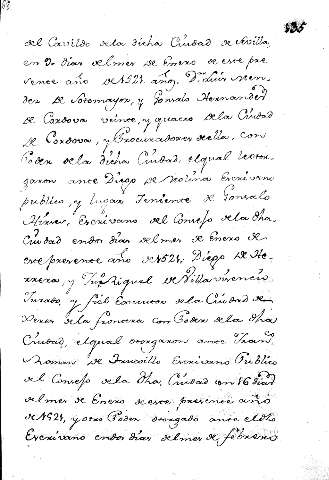 135
del Cavildo de la dicha Ciudad de Sevilla,
en días del mes de Enero de este pre
sente año de 1521 años, Dn Luis Men-
dez de Sotomayor, y Gonzalo Hernandez
de Cordova veinte, y quatro de la Ciudad
de Cordova, y Procuradores de ella, con
Poder de la dicha Ciudad, el qual otor-
garon ante Diego de Molina Escrivano
publico, y Lugar Teniente de Gonzalo
Escrivano del Consejo de la dha
Ciudad en dos días del mes de Enero de
este presente año de 1521, Diego de He-
rrera, y Miguel de Villavicencio
Jurado, y fiel Executor de la Ciudad de
Xerez de la frontera con Poder de la dha
Ciudad, el qual otorgaron ante Fran.
Roman de Truxillo Escrivano Publico
del Consejo de la dha Ciudad en 16 dias
del mes de Enero de este presente año
de 1521, y otro Poder otorgado ante el dho
Escrivano en dos días del mes de febrero